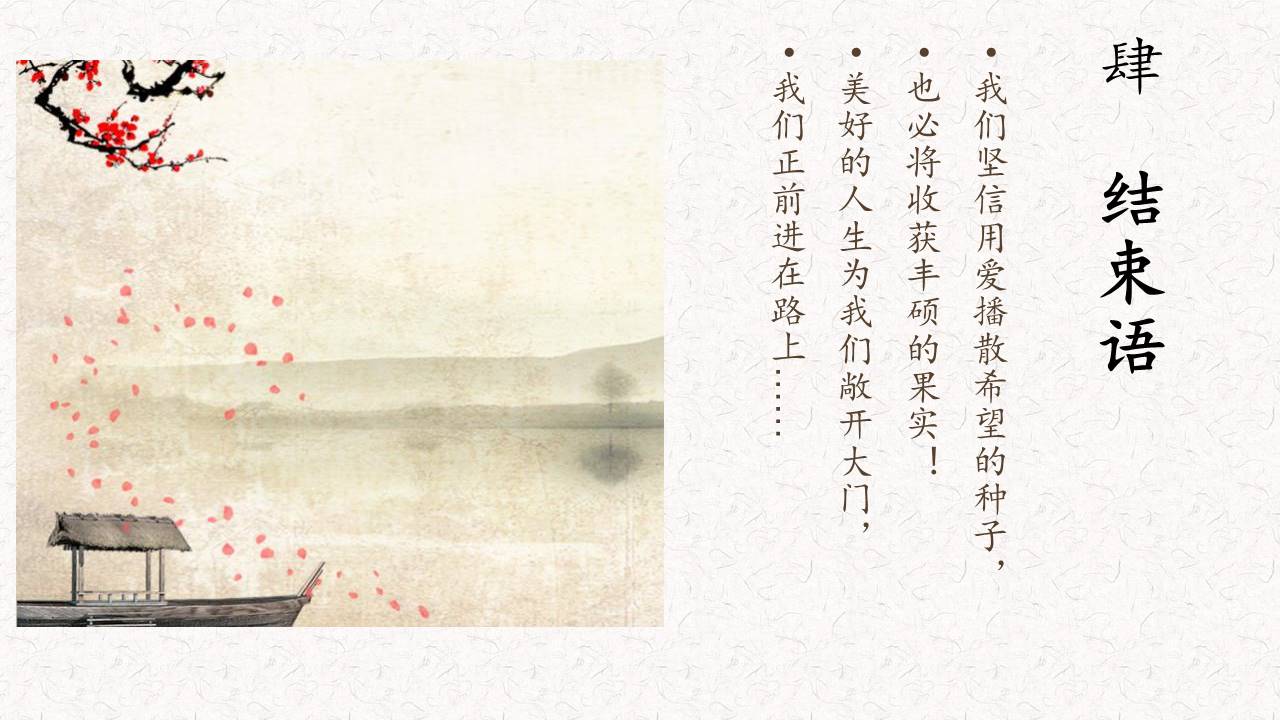 肆 结束语
• 我们坚信用爱播散希望的种子，
• 也必将收获丰硕的果实！
• 美好的人生为我们敞开大门，
• 我们正前进在路上……